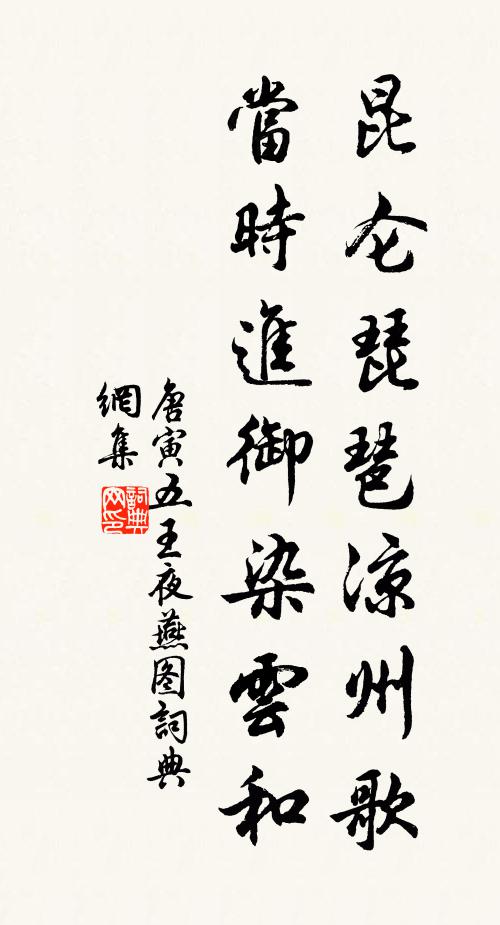 昆仑琵琶凉州歌
當時進御染雲和
唐寅五王夜燕图詞典
網集
詞典
网印